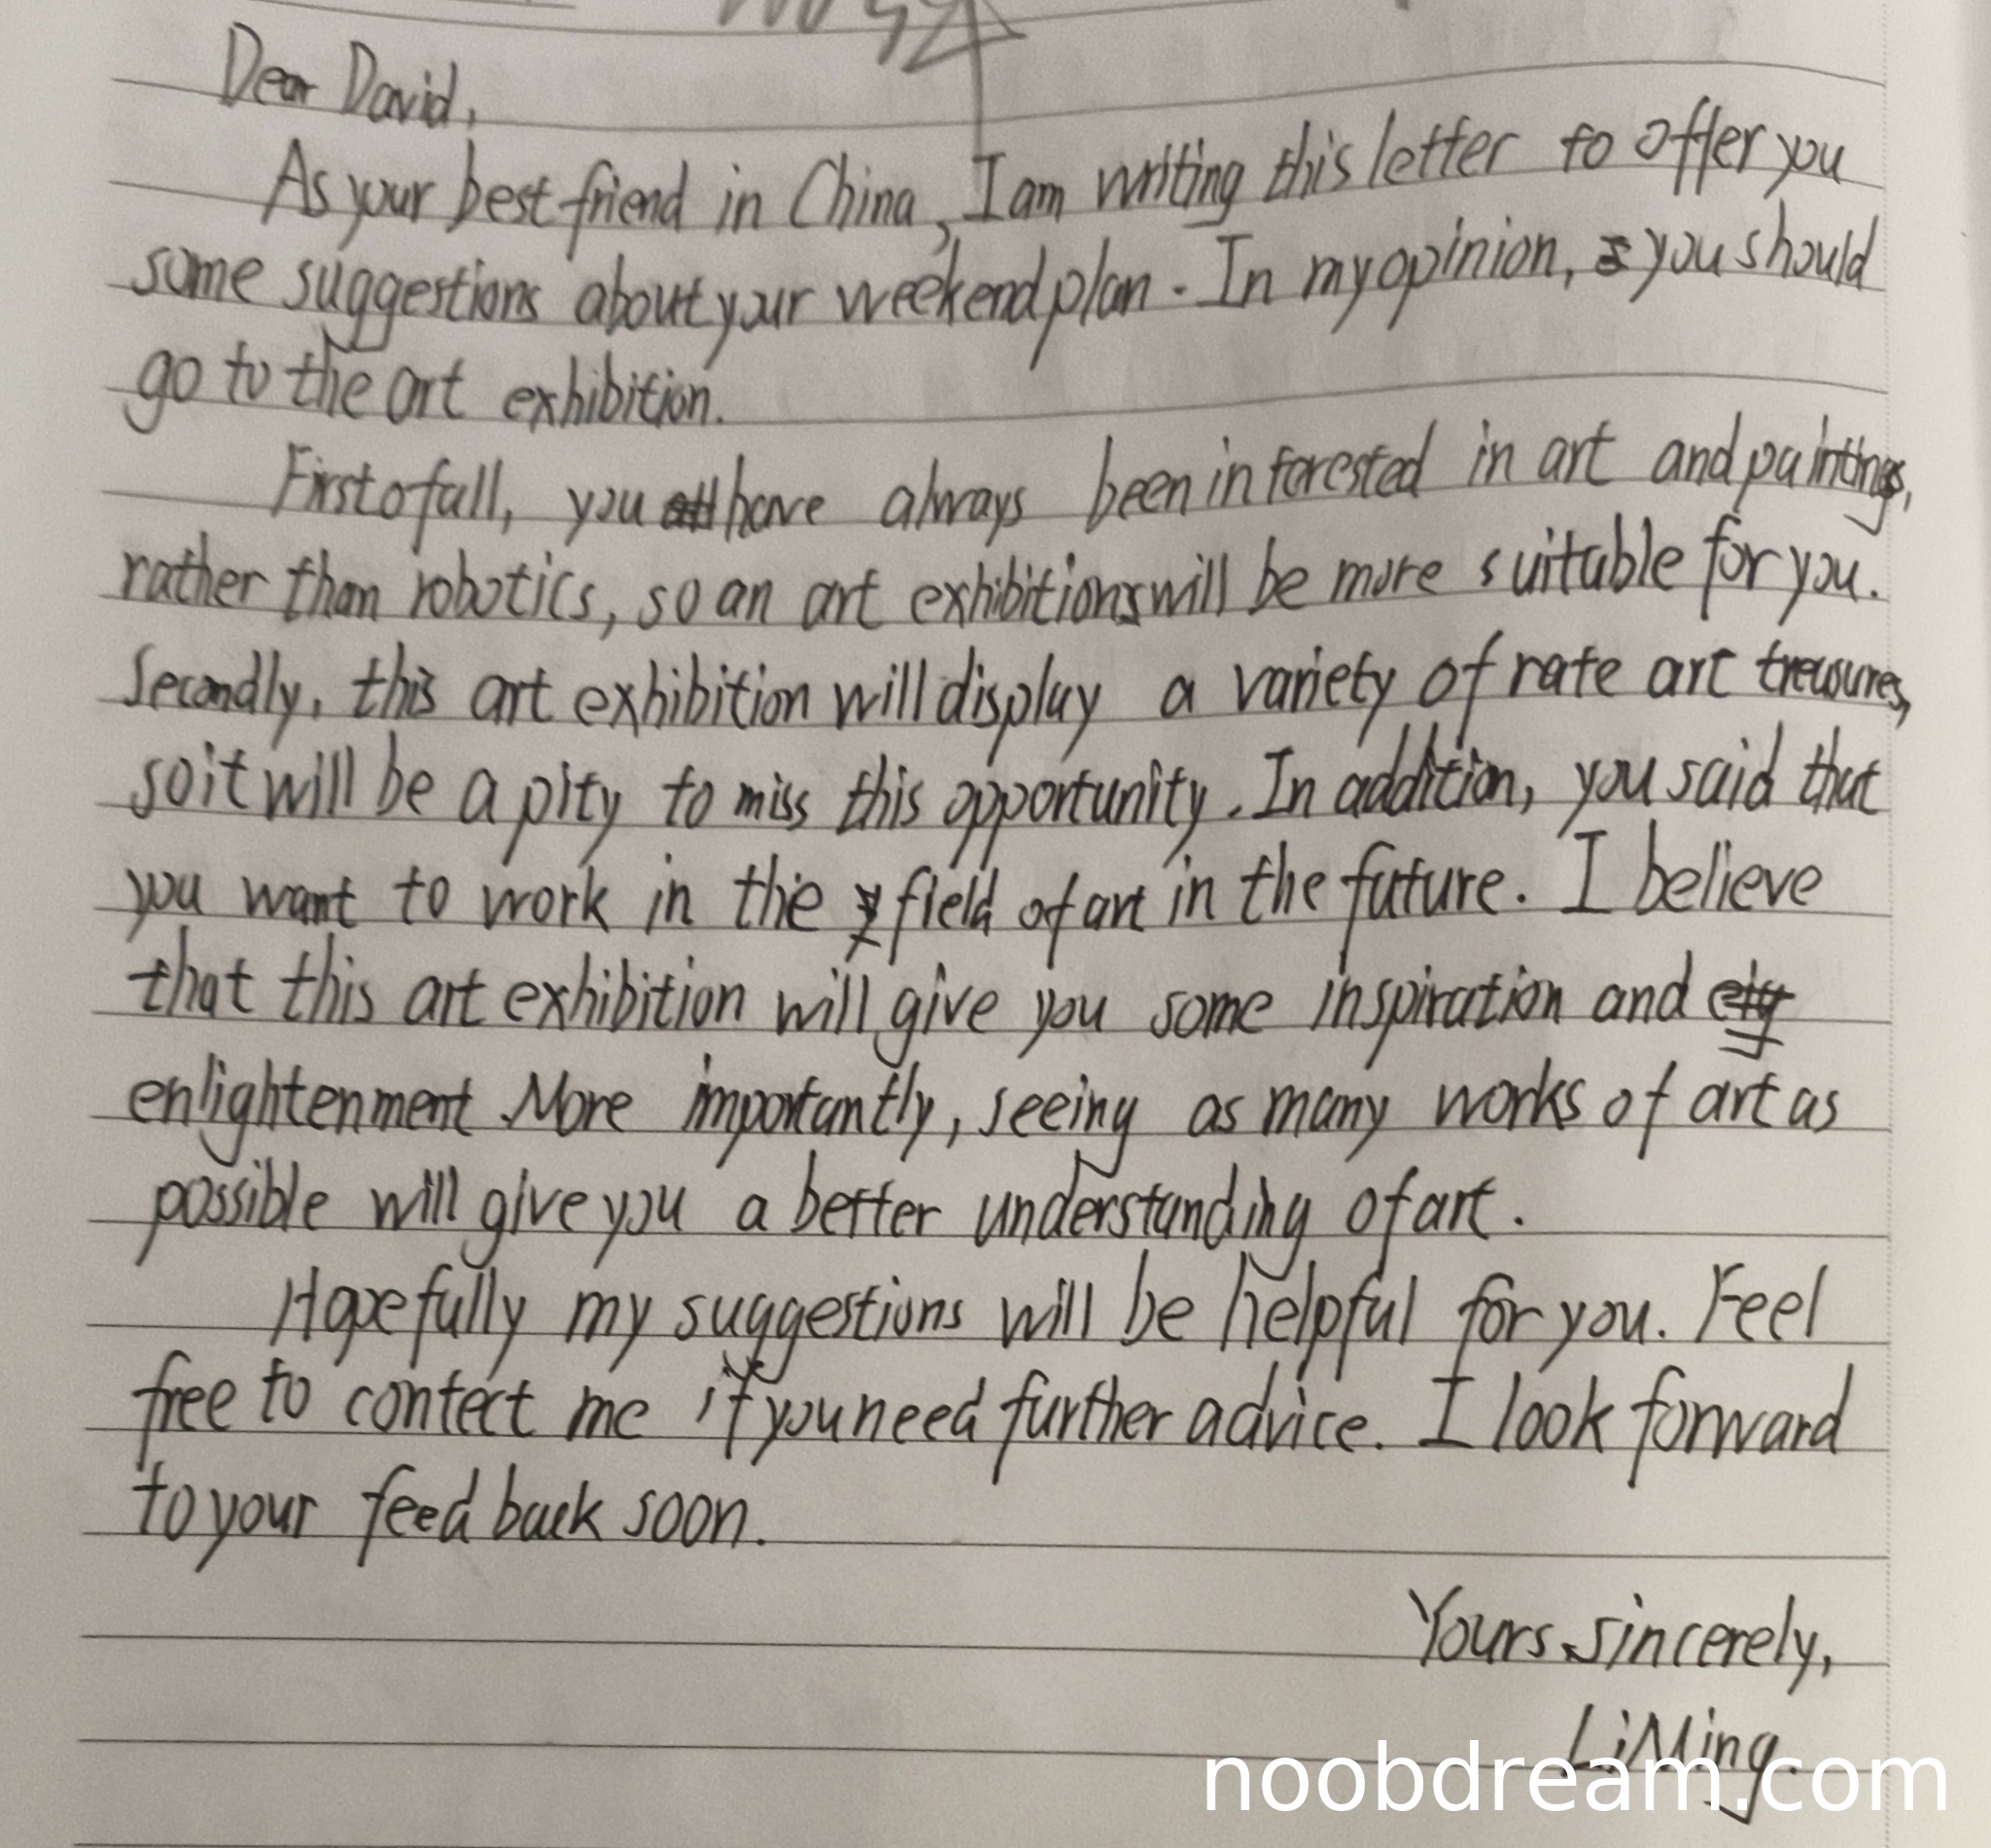 Dear David,
As your best friend in China, I am writing this letter to offer you
some suggestions about your weekend plan. In my opinion, you should
go to the art exhibition.
First of all, you have always been interested in art and paintings,
rather than robotics, so an art exhibitions will be more suitable for you.
Secondly, this art exhibition will display a variety of rate art treasures,
so it will be a pity to miss this opportunity. In addition, you said that
you want to work in the field of art in the future. I believe
that this art exhibition will give you some inspiration and
enlightenment. More importantly, seeing as many works of art as
possible will give you a better understanding of art.
Hopefully my suggestions will be helpful for you. Feel
free to contect me if you need further advice. I look forward
to your feed back soon.
Yours sincerely,
Li Ming.
noobdream.com